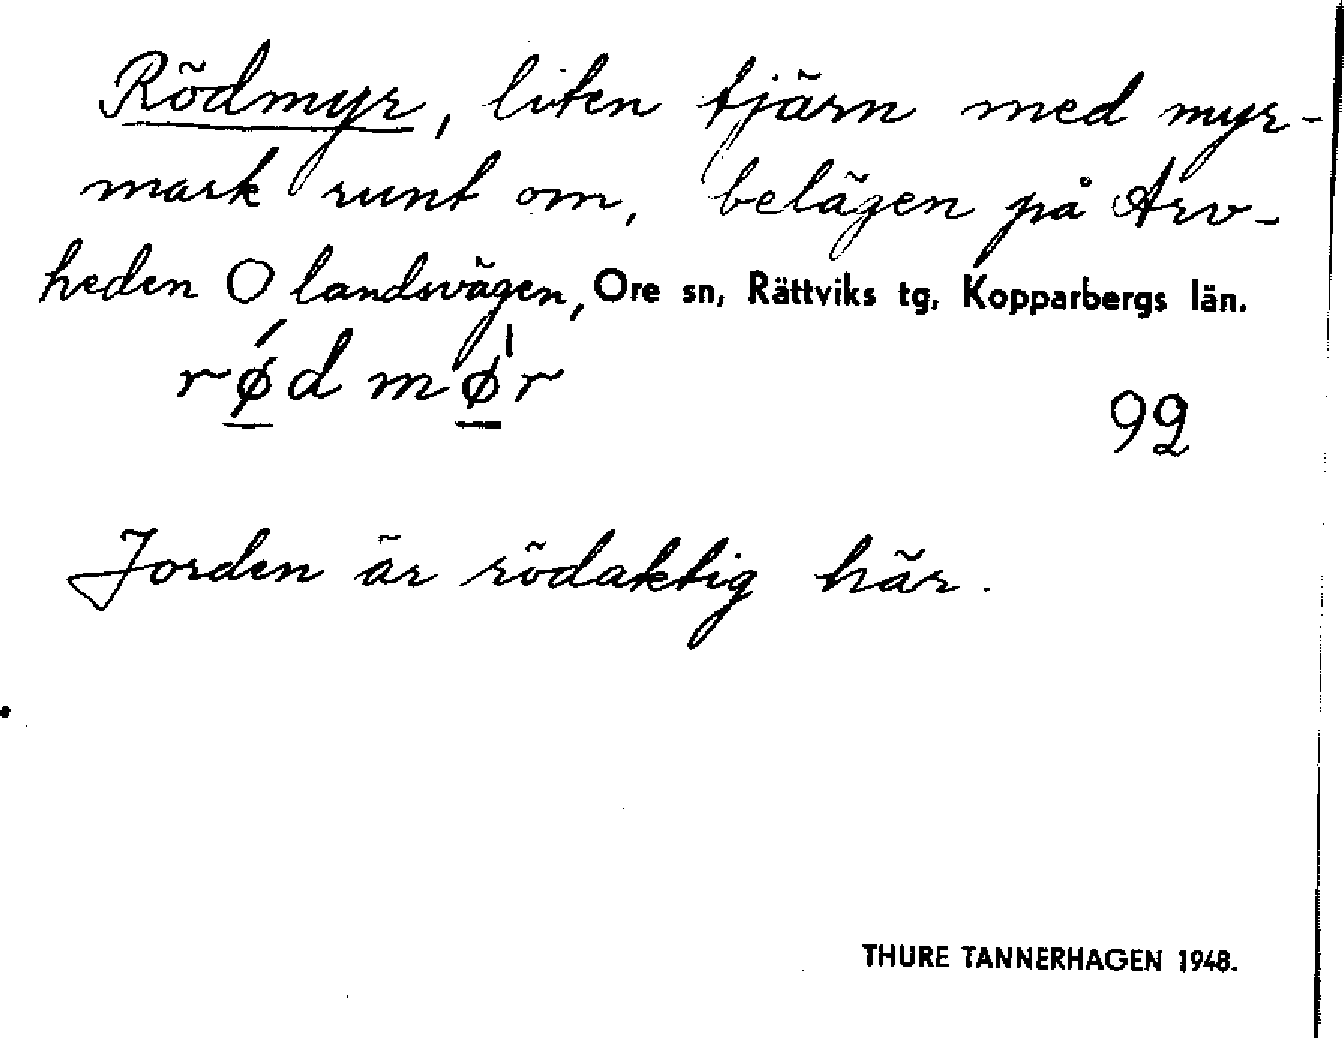 Rödmyr, liten tjärn med myr-
mark runt om, belägen på Arv-
heden O landsvägen, Ore sn, Rättviks tg, Kopparbergs län.
rǿ̲d mø̲̀r
92
Jorden är rödaktig här.
THURE TANNERHAGEN 1948.